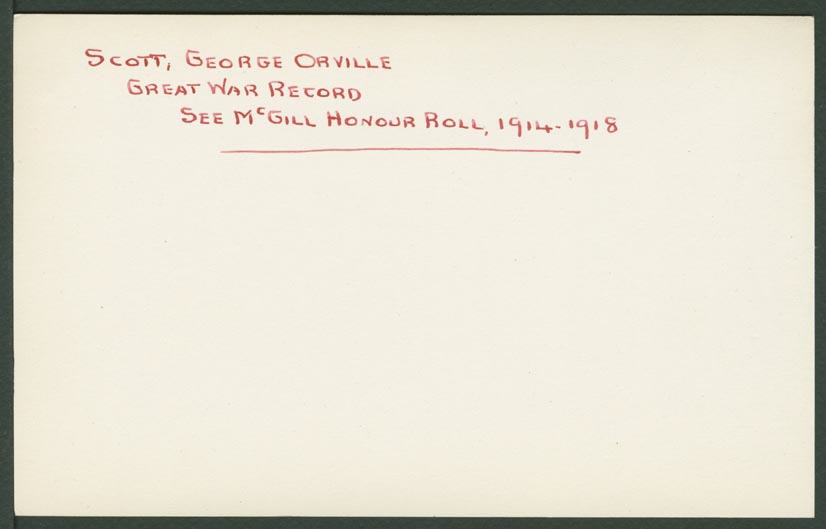 SCOTT, GEORGE ORVILLE
GREAT WAR RECORD
SEE McGILL HONOUR ROLL, 1914-1918